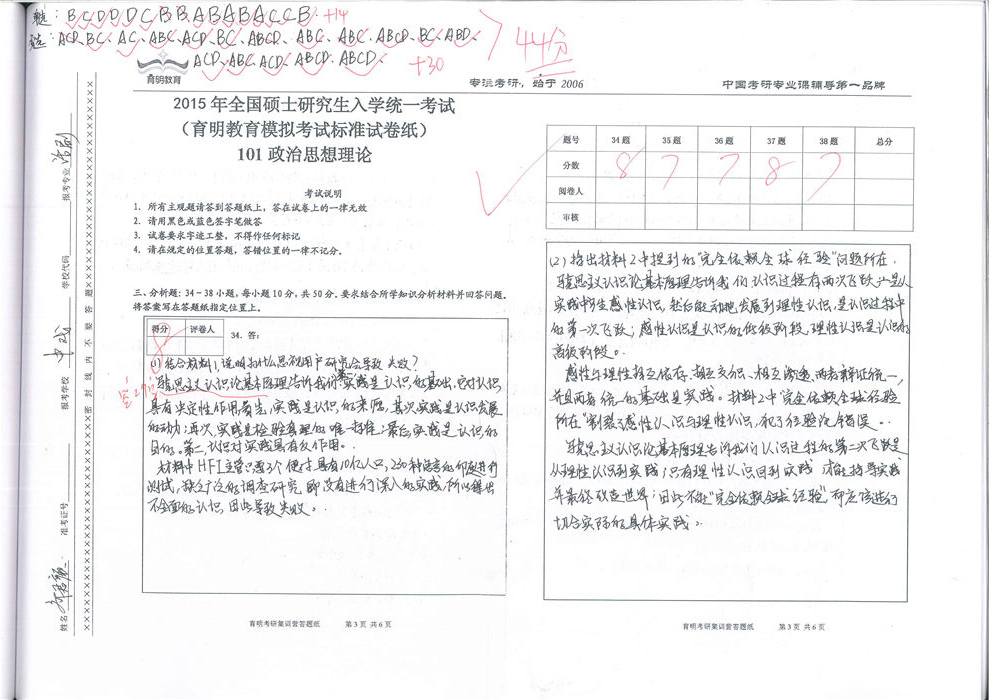 单选: BCDDDCBBABABACCB. +14
多选: ACD、BC、AC、ABC、ACD、BC、ABCD、ABC、ABC、ABCD、BC、ABD、
ACD、ABC、ACD、ABCD、ABCD、 +30
44分
育明教育
专注考研，始于 2006
中国考研专业课辅导第一品牌
2015 年全国硕士研究生入学统一考试
（育明教育模拟考试标准试卷纸）
101 政治思想理论
考试说明
1. 所有主观题请答到答题纸上，答在试卷上的一律无效
2. 请用黑色或蓝色签字笔做答
3. 试卷要求字迹工整，不得作任何标记
4. 请在规定的位置答题，答错位置的一律不记分。
三、分析题：34－38 小题，每小题 10 分，共 50 分，要求结合所学知识分析材料并回答问题。
将答案写在答题纸指定位置上。
得分 评卷人
8
34. 答：
(1) 结合材料1，说明为什么忽视用户研究会导致失败?
马克思主义认识论基本原理告诉我们:第一,实践是认识的基础,它对认识
具有决定性作用。首先,实践是认识的来源,其次,实践是认识发展
的动力;再次,实践是检验真理的唯一标准;最后,实践是认识的
目的。第二,认识对实践具有反作用。
材料中HFI主管只要3个便对具有10亿人口,230种语言的印度进行
测试,缺乏广泛的调查研究,即没有进行深入的实践,所以得出
不全面的认识,因此导致失败。
题号 34 题 35 题 36 题 37 题 38 题 总分
分数 8 7 7 8 7
阅卷人
审核
(2) 指出材料2中提到的“完全依赖全球经验”问题所在.
马克思主义认识论基本原理告诉我们认识过程有两次飞跃:一是从
实践中产生感性认识,然后能动地发展到理性认识,是认识过程中
的第一次飞跃;感性认识是认识的低级阶段,理性认识是认识的
高级阶段。
感性与理性相互依存、相互交织、相互渗透,两者辩证统一,
并且两者统一的基础是实践。材料2中“完全依赖全球经验
所在”割裂了感性认识与理性认识,犯了经验论错误。
马克思主义认识论基本原理告诉我们认识过程的第二次飞跃是
从理性认识到实践,只有理性认识回到实践,才能指导实践
并最终改造世界;因此不能“完全依赖全球经验”而应该进行
切合实际的具体实践。
报考专业 法制
学校代码
报考学校
准考证号
姓名
密 封 线 内 不 要 答 题
育明考研集训营答题纸 第 3 页 共 6 页
育明考研集训营答题纸 第 3 页 共 6 页